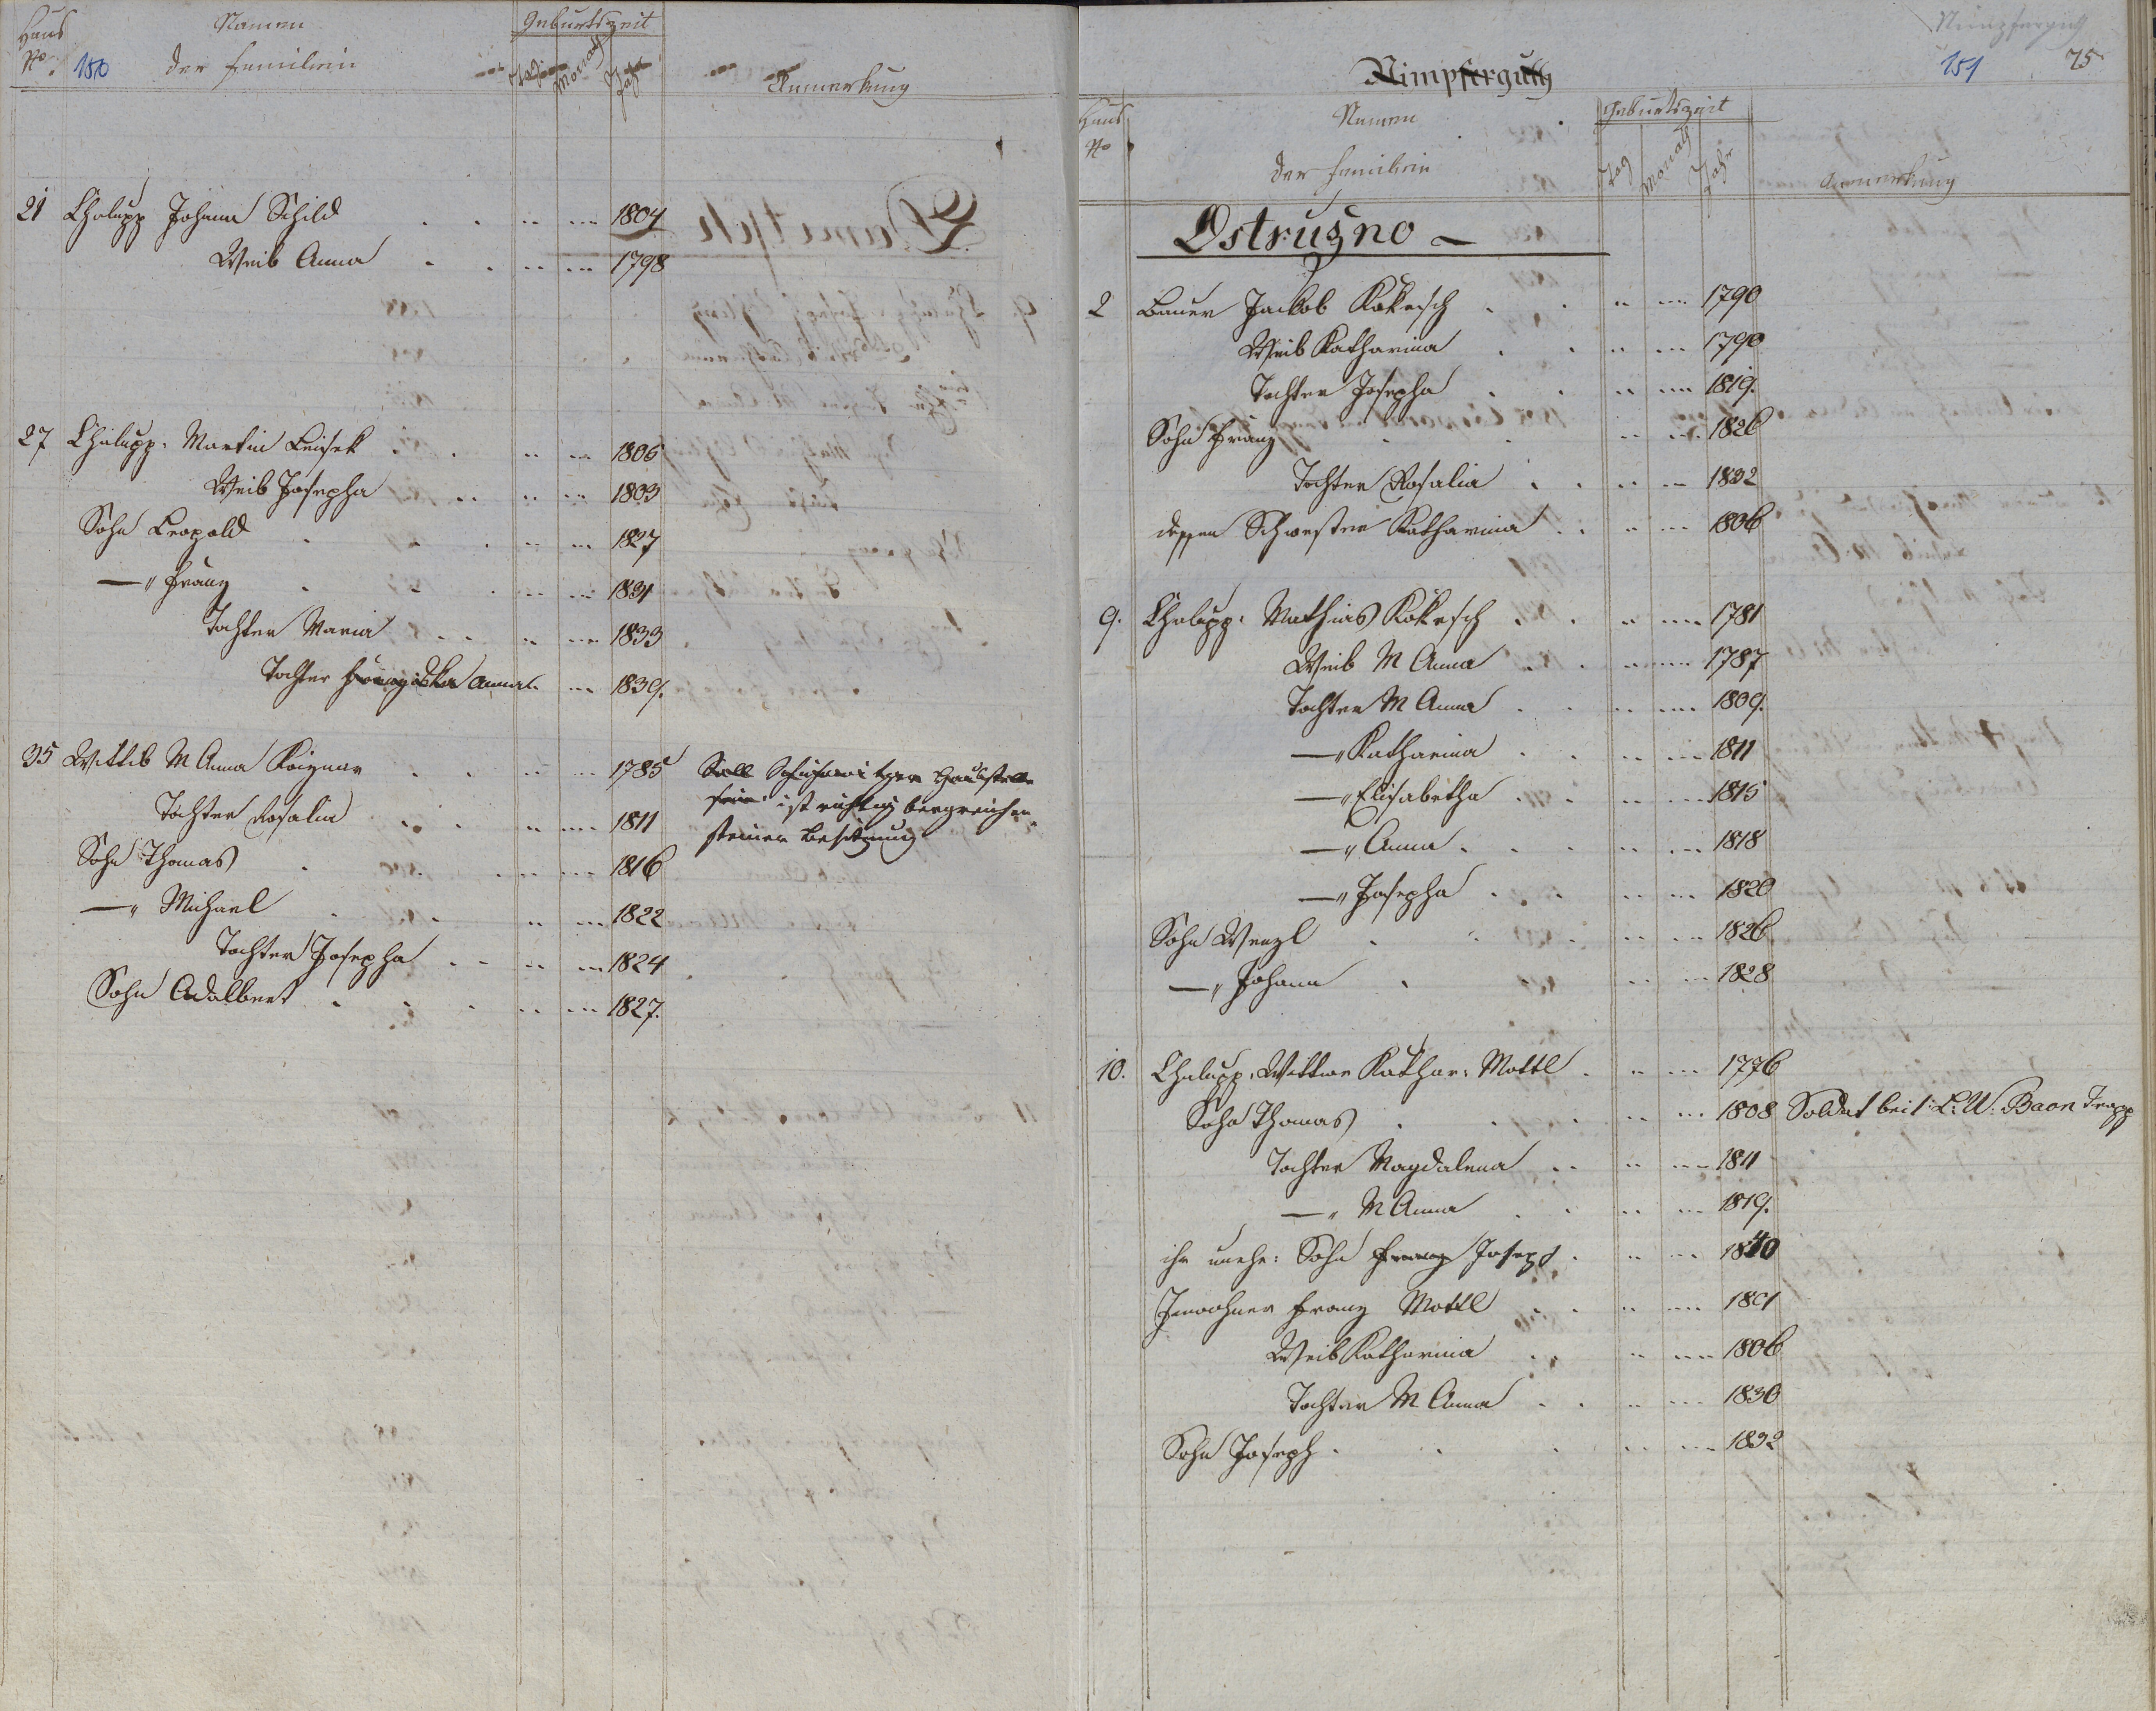 Haus
No.
150
Namen
der Familien
Geburtszeit
Tag Monath Jahr
Anmerkung
21 Chalupp Johann Schild 1804
Weib Anna 1798
27 Chalupp. Martin Beisek 1806
Weib Josepha 1803
Sohn Leopold 1827
—„ Franz 1831
Tochter Maria 1833
Tochter Anna 1839.
35 Wittib M Anna 1785 Soll
sein ist richtig bergreichen
Tochter Rosalia 1811
steiner Besitzung
Sohn Thomas 1816
—„ Michael 1822
Tochter Josepha 1824
Sohn Adalbert 1827.
Nimpfergut
151 75
Nimpfergutt
Haus
No
Namen
der Familien
Geburtszeit
Tag Monath Jahr
Anmerkung
Ostružno —
2 Bauer Jackob Kokesch 1790
Weib Katharina 1790
Tochter Josepha 1819.
Sohn Franz 1826
Tochter Rosalia 1832
dessen Schwester Katharina 1806
9. Chalupp. Mathias Kokesch 1781
Weib M Anna 1787
Tochter M Anna 1809.
—„ Katharina 1811
—„ Elisabetha 1815
—„ Anna 1818
—„ Josepha 1820
Sohn Wenzl 1826
—„ Johann 1828
10. Chalupp. Wittwe Kathar: Mottl 1776
Sohn Thomas 1808 Soldat bei 1: L: W: Baon Trapp
Tochter Magdalena 1811
—„ M Anna 1819.
ihr unehe: Sohn Franz Joseph 1840
Inwohner Franz Mottl 1801
Weib Katharina 1806
Tochter M Anna 1830
Sohn Joseph 1832